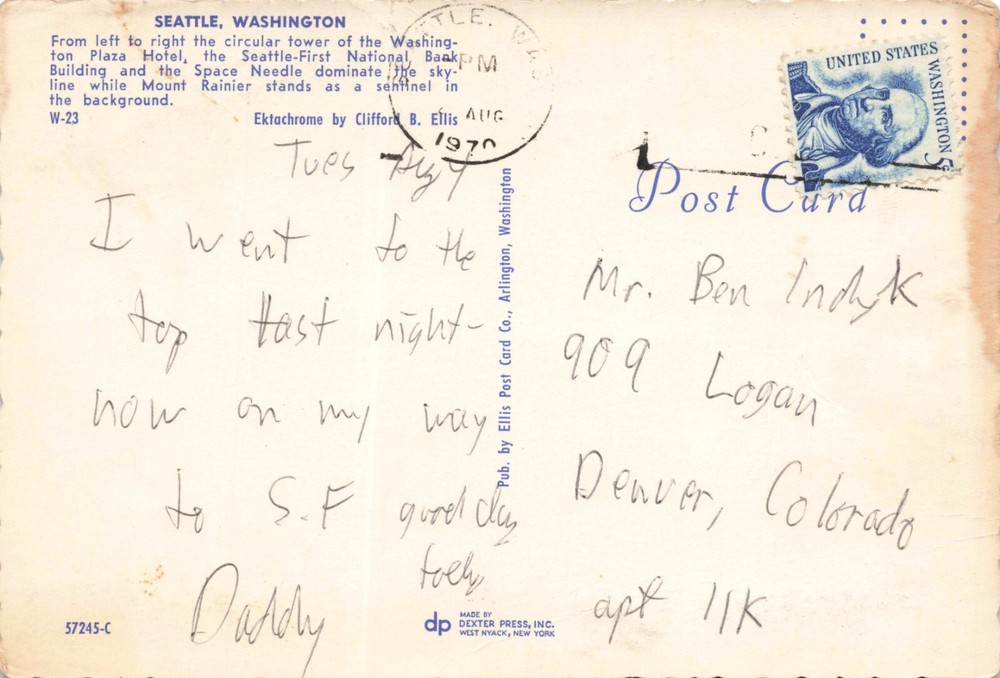 SEATTLE, WASHINGTON
From left to right the circular tower of the Washing-
ton Plaza Hotel, the Seattle-First National Bank
Building and the Space Needle dominate the sky-
line while Mount Rainier stands as a sentinel in
the background.
W-23 Ektachrome by Clifford B. Ellis
TTLE. WAS
PM
AUG
1970
UNITED STATES
WASHINGTON 5c
Post Card
Tues Aug 4
I went to the
top last night-
now on my way
to S.F good day
today
Daddy
Pub. by Ellis Post Card Co., Arlington, Washington
Mr. Ben Indyk
909 Logan
Denver, Colorado
apt 11K
57245-C
dp MADE BY
DEXTER PRESS, INC.
WEST NYACK, NEW YORK